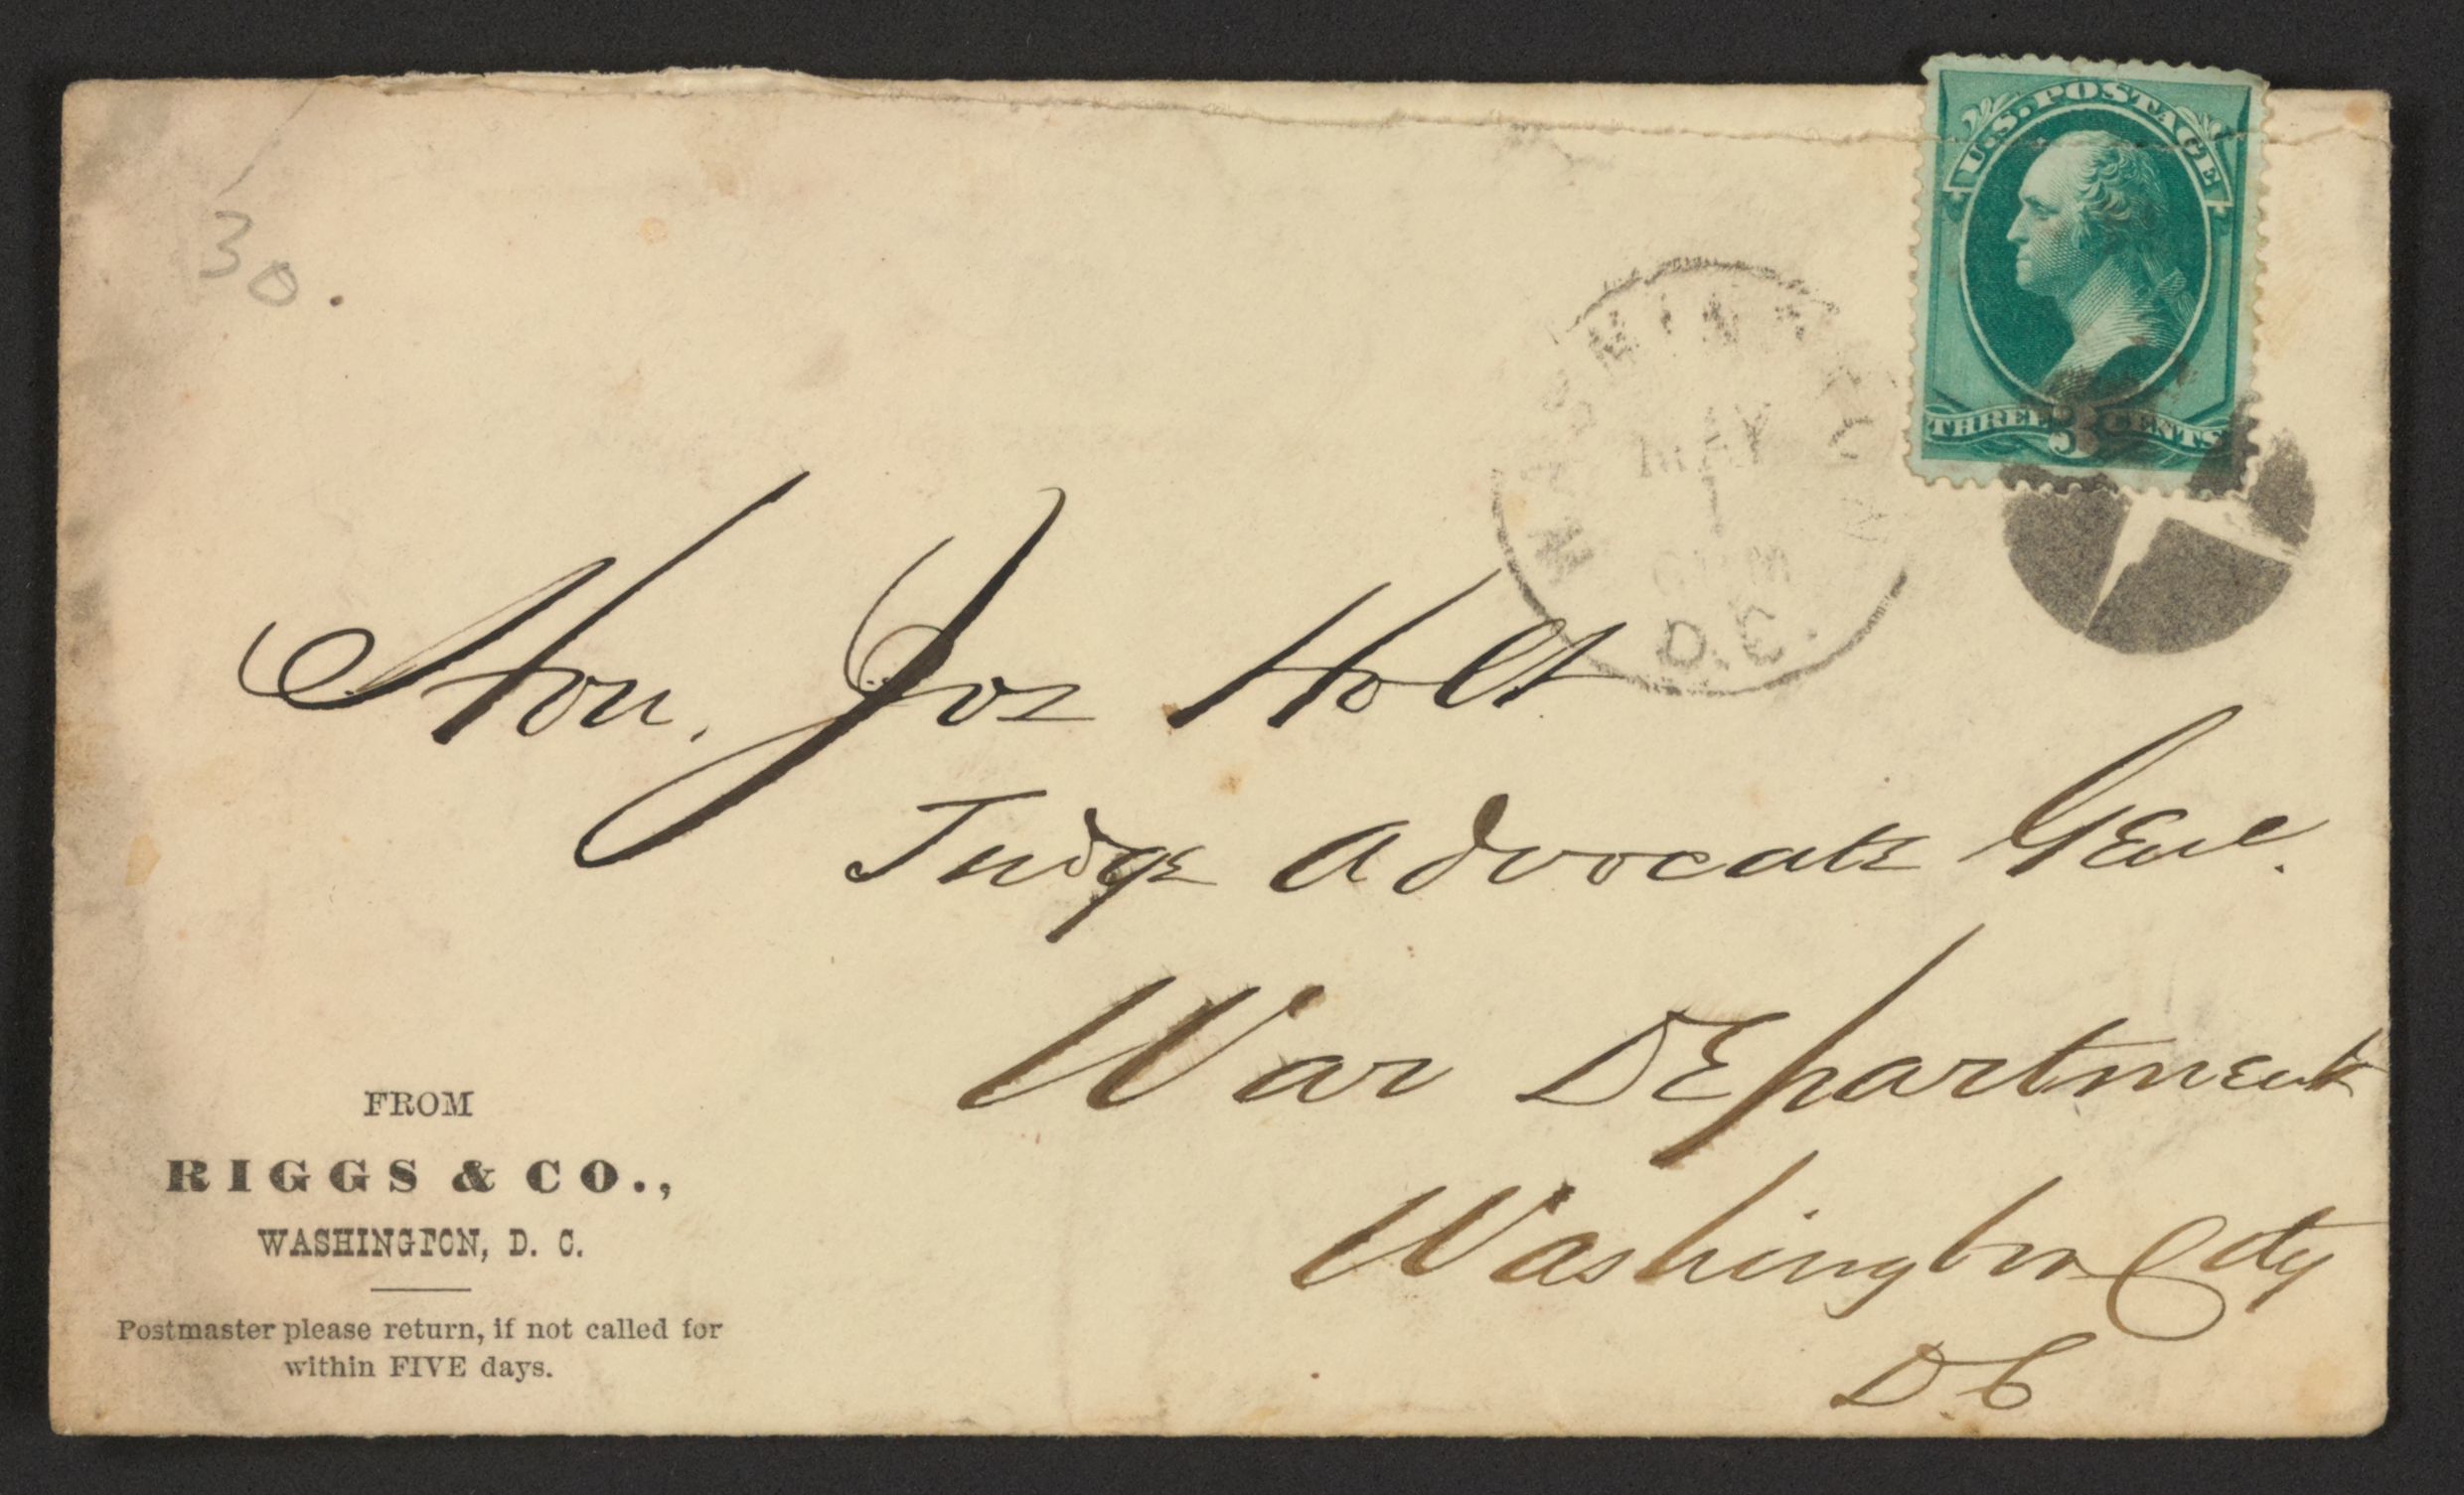 U.S. POSTAGE
THREE 3 CENTS
30.
WASHINGTON
MAY
1
D.C.
Hon. Jos Holt
Judge Advocate Genl.
War Department
Washington City
D.C
FROM
RIGGS & CO.,
WASHINGTON, D. C.
Postmaster please return, if not called for
within FIVE days.